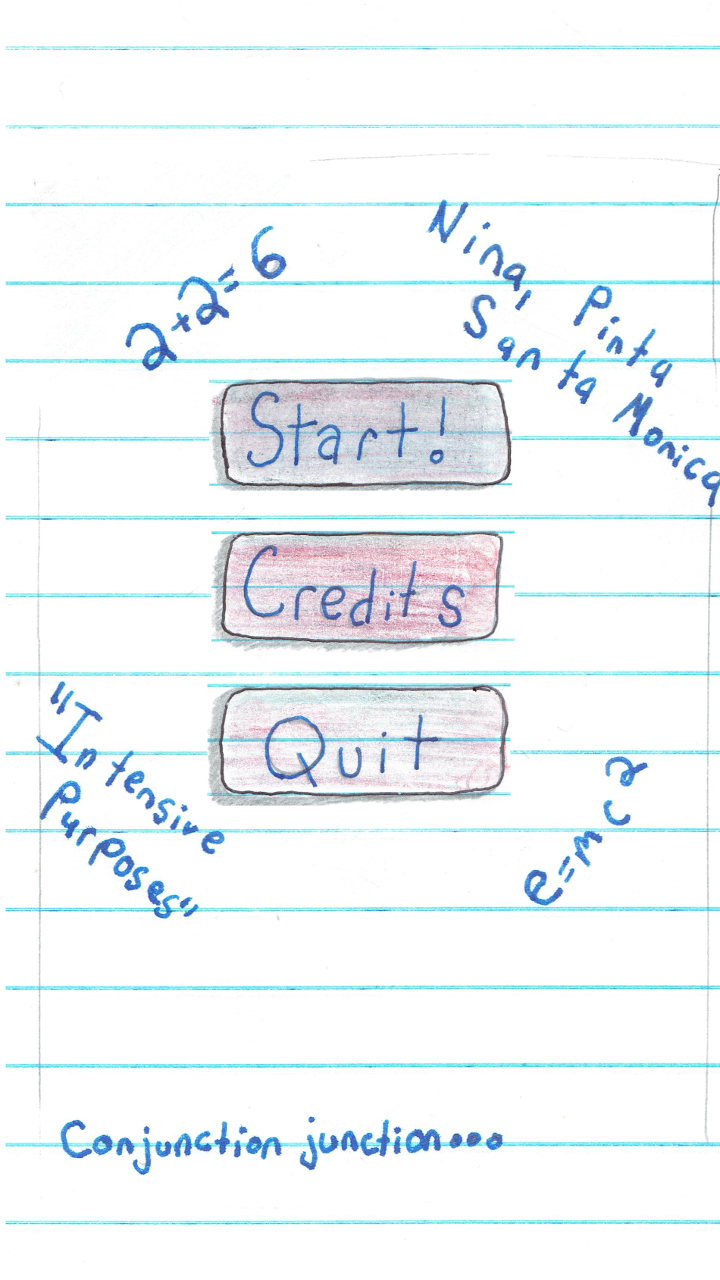 2+2=6
Nina, Pinta
Santa Monica
Start!
Credits
Quit
"Intensive
Purposes"
e=mc²
Conjunction junction...